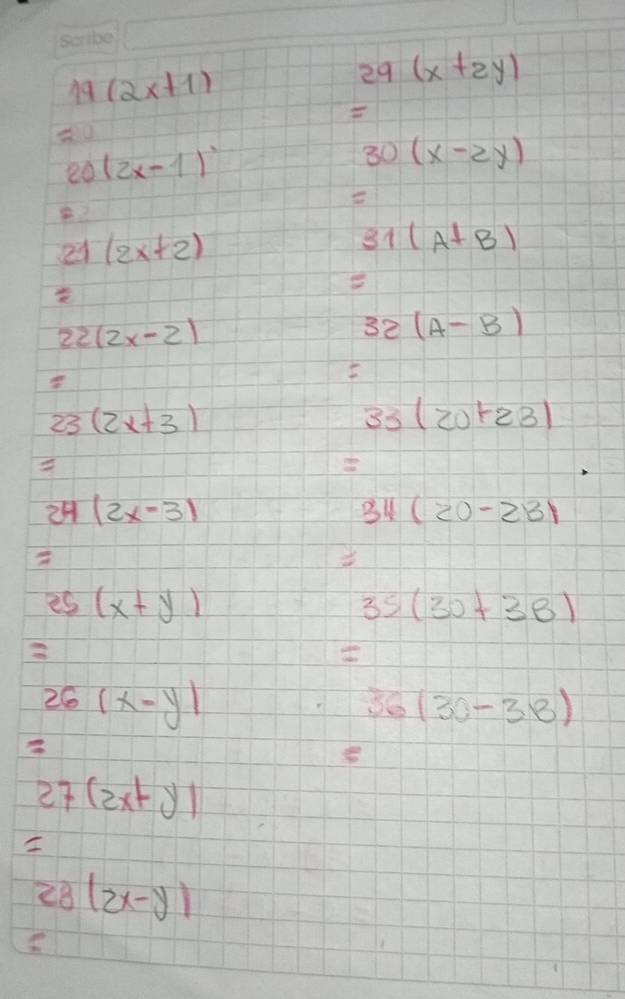 Scribe
19 (2x+1)
=
20 (2x-1)
=
21 (2x+2)
=
22 (2x-2)
=
23 (2x+3)
=
24 (2x-3)
=
25 (x+y)
=
26 (x-y)
=
27 (2x+y)
=
28 (2x-y)
=
29 (x+2y)
=
30 (x-2y)
=
31 (A+B)
=
32 (A-B)
=
33 (20+2B)
=
34 (20-2B)
=
35 (30+3B)
=
36 (30-3B)
=